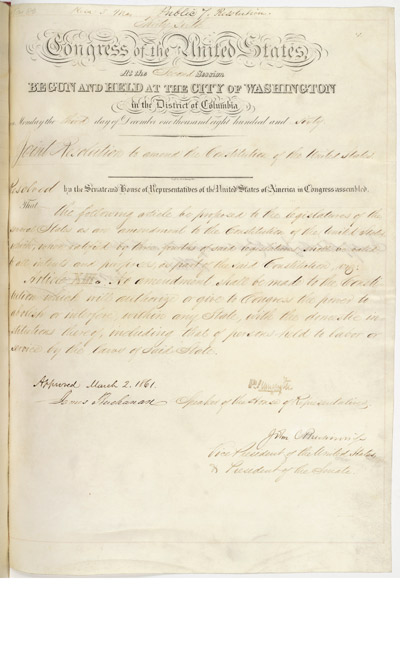 Public Resolution
Thirty-Sixth
Congress of the United States,
At the Second Session
BEGUN AND HELD AT THE CITY OF WASHINGTON
in the District of Columbia
on Monday the third day of December one thousand eight hundred and sixty.
Joint Resolution to amend the Constitution of the United States.
Resolved by the Senate and House of Representatives of the United States of America in Congress assembled,
That the following article be proposed to the legislatures of the
several States as an amendment to the Constitution of the United States
which, when ratified by three fourths of said legislatures, shall be valid
to all intents and purposes, as part of the said Constitution, viz:
Article XIII. No amendment shall be made to the Consti-
tution which will authorize or give to Congress the power to
abolish or interfere, within any State, with the domestic in-
stitutions thereof, including that of persons held to labor or
service by the laws of said State.
Approved March 2. 1861.
James Buchanan
Speaker of the House of Representatives,
Vice President of the United States
& President of the Senate